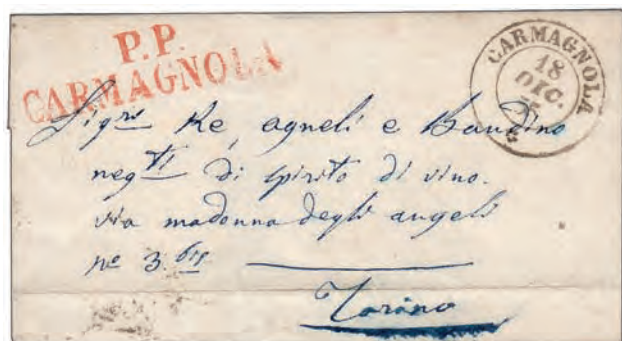 P.P.
CARMAGNOLA
CARMAGNOLA
18
DIC.
Sigri Re, agneli e Bandino
negti di spirito di vino.
via madonna degli angeli
no 3 bis
Torino